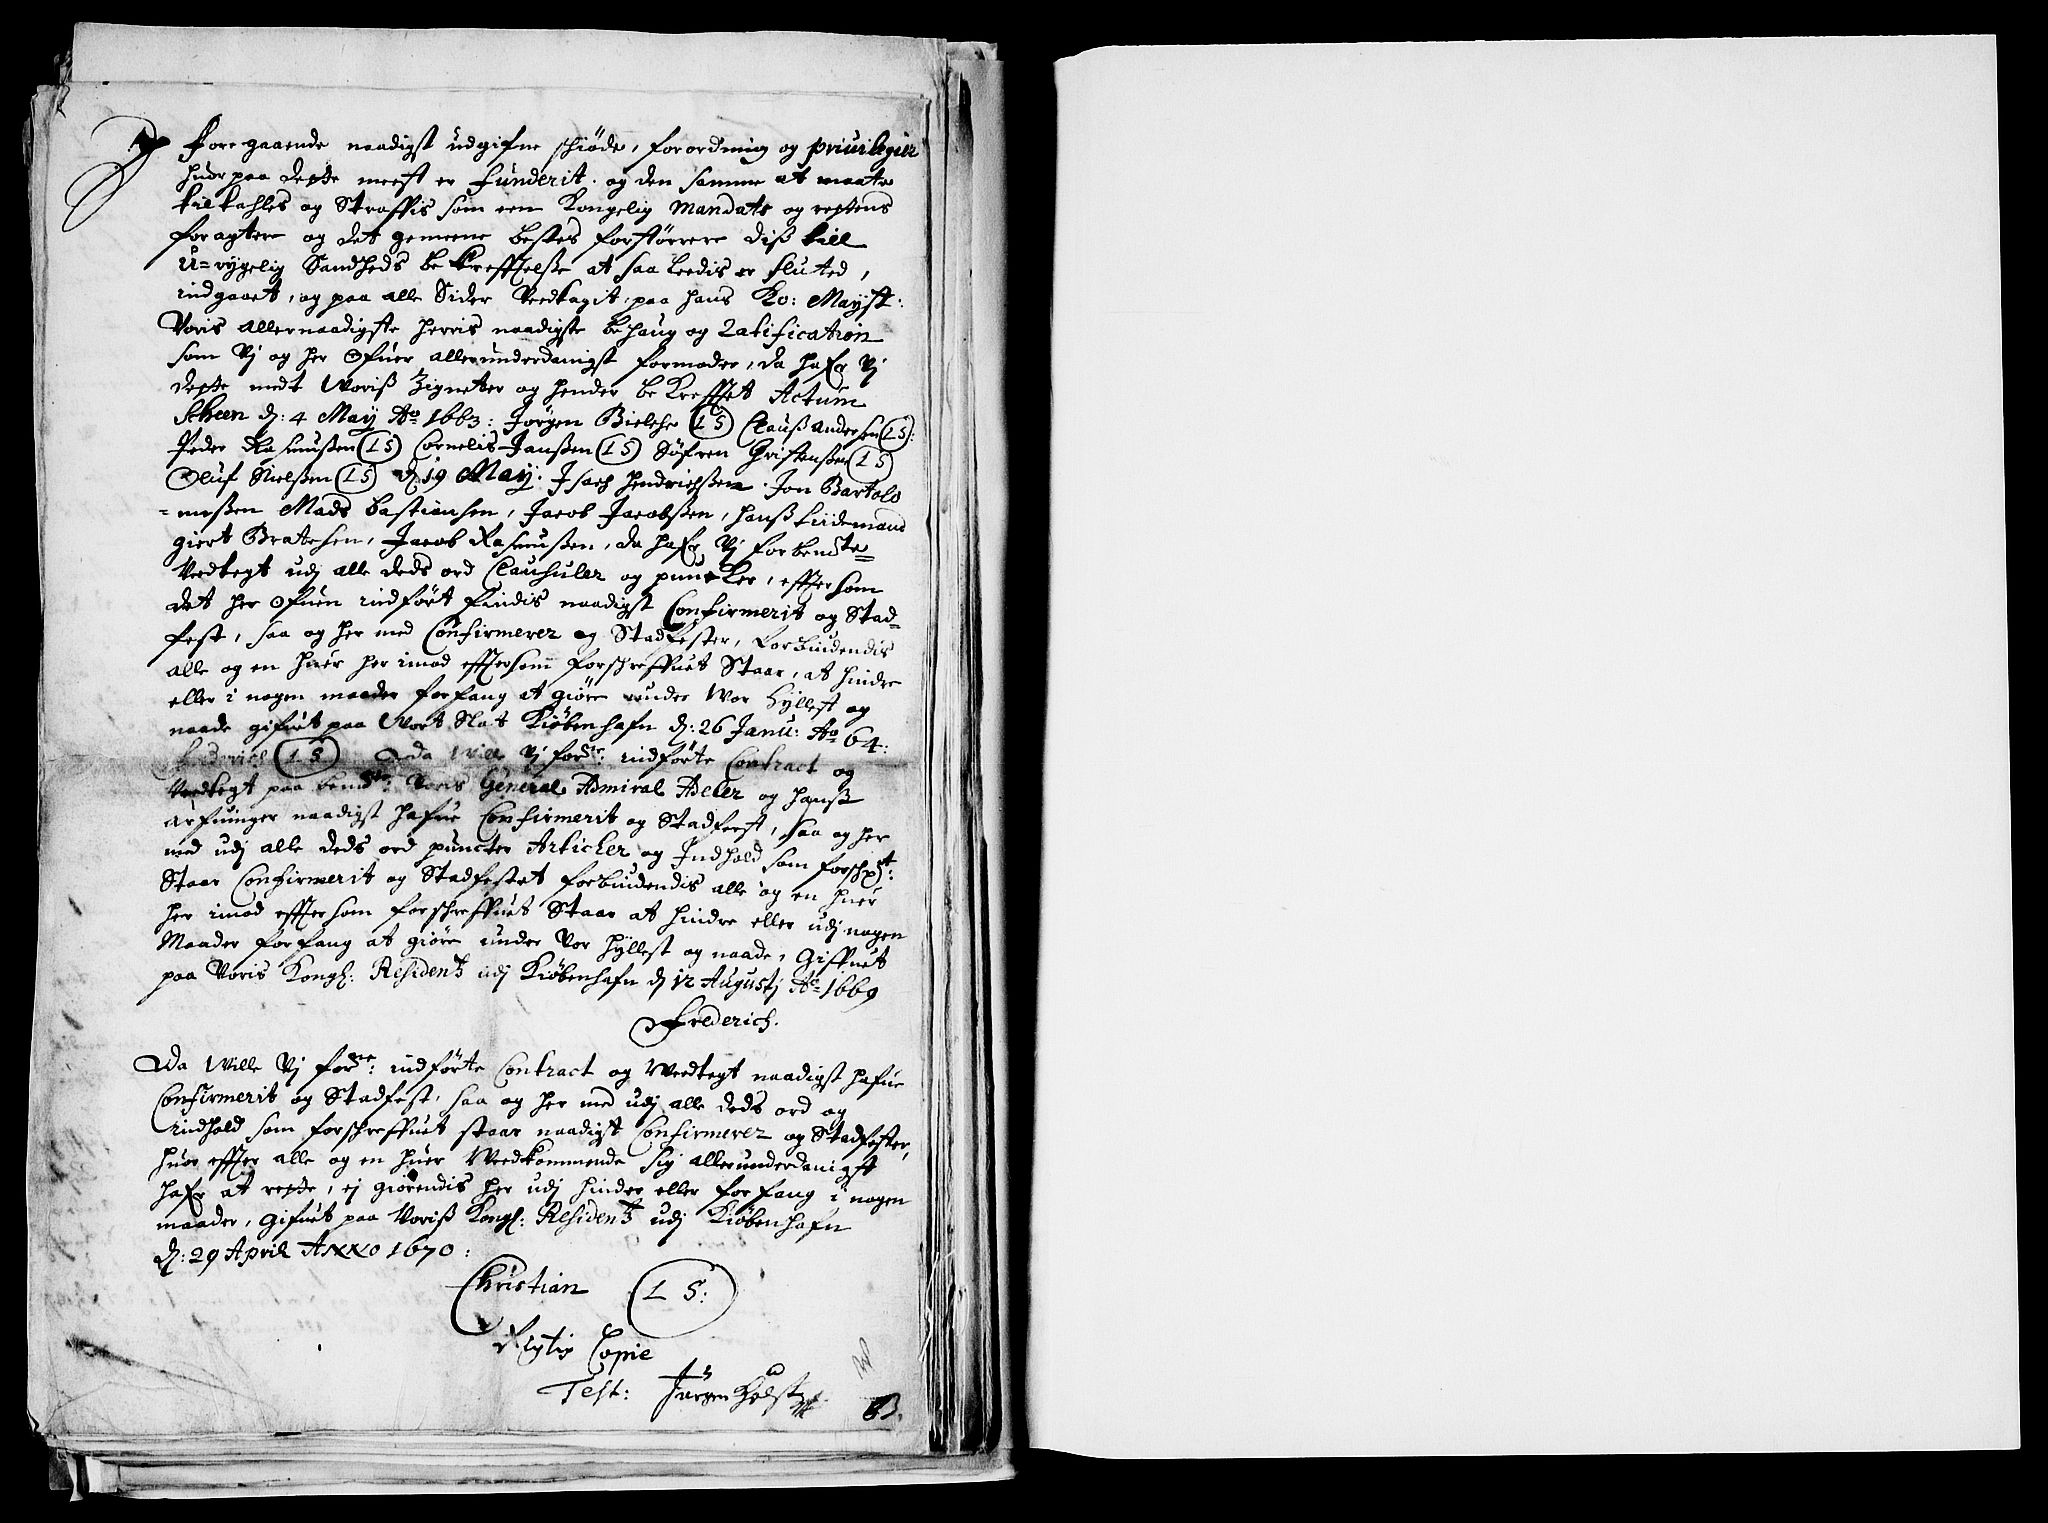 foregaaende naadigst udgifne schiöde, forordning og priuilegier
huor paa dette meest er funderit. og den samme at maatte
tiltahles og Straffis som een Kongelig Mandats og rettens
foragter og det gemeene bestes forstörrere diß till
u=rygelig Sandheds bekrefftelße at saa leedis er sluted,
indgaaet, og paa alle Sider Vedtagit, paa hans Ko: Mayst:
Voris allernaadigste herris naadigste behaug og Ratification
som Vj og her Ofuer allerunderdanigst formoder, da hafr Vj
dette medt Woriß Zigneter og hender bekrefftet Actum
Scheen d: 4 May Ao 1663: Jörgen Bielche (L S) Clauß Andersen (L S):
Peder Rasmußen (L S) Cornelis Janßen (L S) Söfren Christenßen (L S)
Oluf Nielßen (L S) d 19 May: Isach Hendrichßen. Jon Bartolo
=meßen Mads Bastiansen, Jacob Jacobßen, Hanß Lindemand
giert Bratsen, Jacob Rasmußen, da hafr Vj forbemte=
Vedtegt udj alle deds ord Clausuler og puncter, effter som
det her Ofuen indfört findis naadigst Confirmerit og Stad=
fest, saa og her med Confirmerer og Stadfester, forbiudendis
alle og en huer her imod effter som forschreffuet Staar, at hindre
eller i nogen maader forfang at giöre under Wor Hyllest og
naade gifuet paa Wort Slot Kiöbenhafn d: 26 Janu: Ao 64:
Frederich (L S) Da Will Vj forne: indförte Contract og
Vedtegt paa bemte: Voris General Admiral Adeler og hanß
arfuinger naadigst hafue Confirmerit og Stadfest, saa og her
med udj alle deds ord puncter Articler og Indhold som forschr.t:
Staar Confirmerit og Stadfestet forbiudendis alle og en huer
her imod effter som forschreffuet Staar at hindre eller udj nogen
Maader forfang at giöre under Vor Hyllest og naade, Giffuet
paa Voris Kongl: Residentz udj Kiöbenhafn d 12 Augustj Ao 1669
Frederich.
Da Wille Vj forne: indförte Contract og Wedtegt naadigst hafue
Confirmerit og Stadfest, saa og her med udj alle deds ord og
indhold som forschreffuet staar naadigst Confirmerer og Stadfester,
huor effter alle og en huer Wedkommende sig allerunderdanigst
hafr at rette, ej giörendis her udj hinder eller forfang i nogen
maader, Gifuet paa Voriß Kongl: Residentz udj Kiöbenhafn
d: 29 April ANNO 1670:
Christian (L S:)
Rigtig Copie
Test: Jürgen Holst
B.